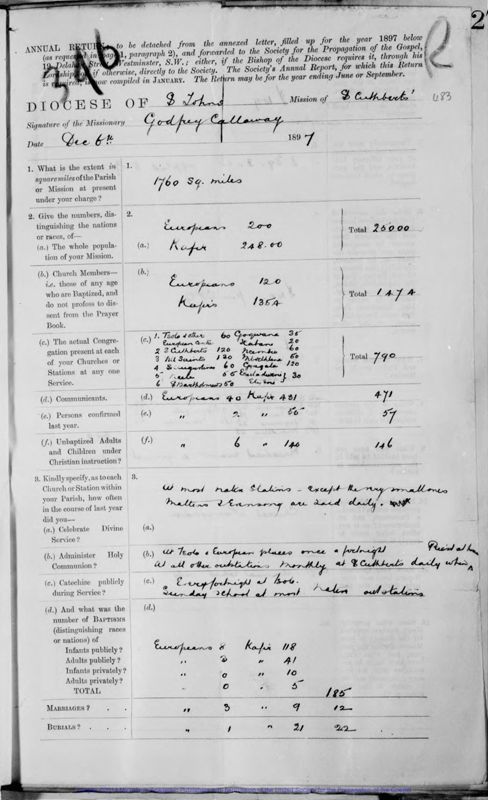 ANNUAL RETURN, to be detached from the annexed letter, filled up for the year 1897 below
(as requested in page 1, paragraph 2), and forwarded to the Society for the Propagation of the Gospel,
19 Delahay Street, Westminster, S.W.; either, if the Bishop of the Diocese requires it, through his
Lordship, or if otherwise, directly to the Society. The Society's Annual Report, for which this Return
is required, is now compiled in JANUARY. The Return may be for the year ending June or September.
346
R
2
483
DIOCESE OF St Johns Mission of St Cuthberts'
Signature of the Missionary Godfrey Callaway
Date Dec 6th 1897
1. What is the extent in
square miles of the Parish
or Mission at present
under your charge?
1.
1760 Sq. miles
2. Give the numbers, dis-
tinguishing the nations
or races, of—
(a.) The whole popula-
tion of your Mission.
2.
Europeans 200
(a.) Kafir 248.00
Total 25000
(b.) Church Members—
i.e. those of any age
who are Baptized, and
do not profess to dis-
sent from the Prayer
Book.
(b.)
Europeans 120
Kafirs 1354
Total 1474
(c.) The actual Congre-
gation present at each
of your Churches or
Stations at any one
Service.
(c.) 1. Tsolo & other 60 35
European Outs 20
2 St Cuthberts 120 60
3 All Saints 120 50
4 St Augustines 60 120
5 55 30
6 St Bartholomews 50
Total 790
(d.) Communicants.
(d.) Europeans 40 Kafir 431
471
(e.) Persons confirmed
last year.
(e.) " 2 " 55
57
(f.) Unbaptized Adults
and Children under
Christian instruction?
(f.) " 6 " 140
146
3. Kindly specify, as to each
Church or Station within
your Parish, how often
in the course of last year
did you—
(a.) Celebrate Divine
Service?
3.
At most native Stations - except the very small ones
Mattins & Evensong are said daily.
(a.)
(b.) Administer Holy
Communion?
(b.) At Tsolo & European places once a fortnight
At all other outstations monthly at St Cuthberts daily when Priest at home
(c.) Catechize publicly
during Service?
(c.) Every fortnight at Tsolo.
Sunday School at most native outstations
(d.) And what was the
number of BAPTISMS
(distinguishing races
or nations) of
Infants publicly?
Adults publicly?
Infants privately?
Adults privately?
TOTAL
(d.)
Europeans 8 Kafir 118
" 3 " 41
" 0 " 10
0 " 5
185
MARRIAGES? . . " 3 " 9 12
BURIALS? . . " 1 " 21 22